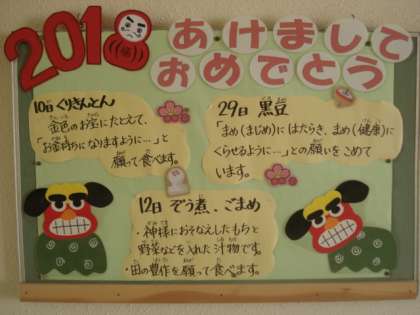 2018
あけまして
おめでとう
10日 くりきんとん
金色のお宝にたとえて、
「お金持ちになりますように…」と
願って食べます。
29日 黒豆
「まめ(まじめ)にはたらき、まめ(健康)に
くらせるように…」との願いをこめて
います。
12日 ぞう煮、ごまめ
・神様におそなえしたもちと
野菜などを入れた汁物です。
・田の豊作を願って食べます。